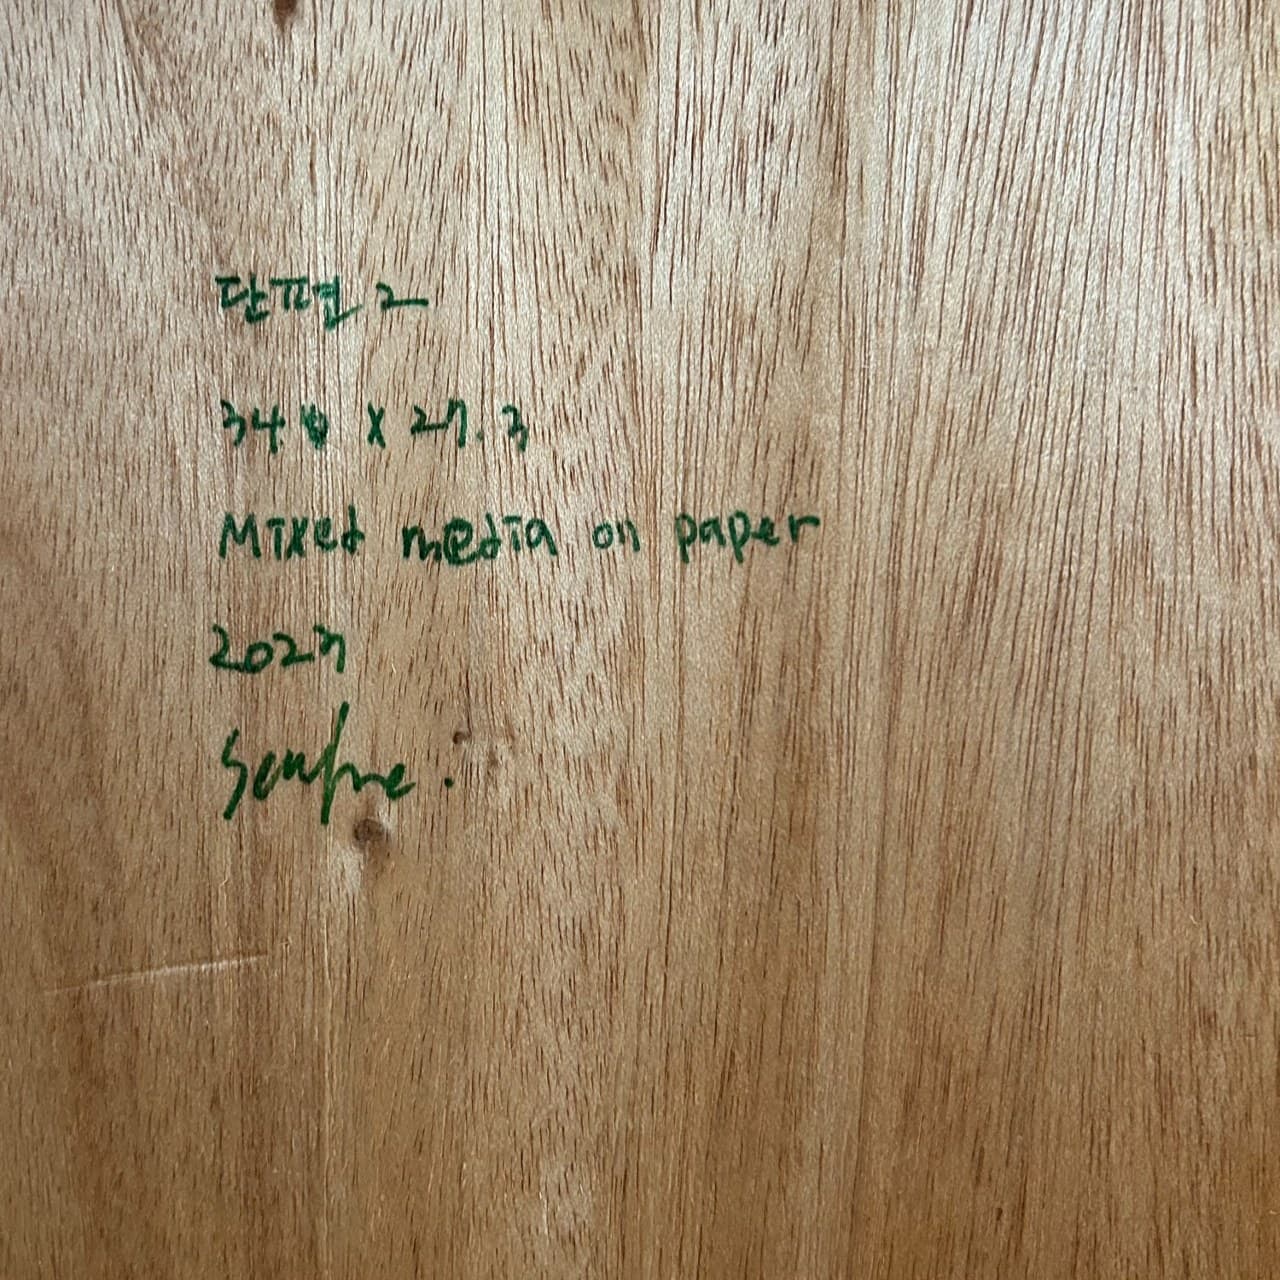 단편 2
34.8 x 27.3
Mixed media on paper
2023